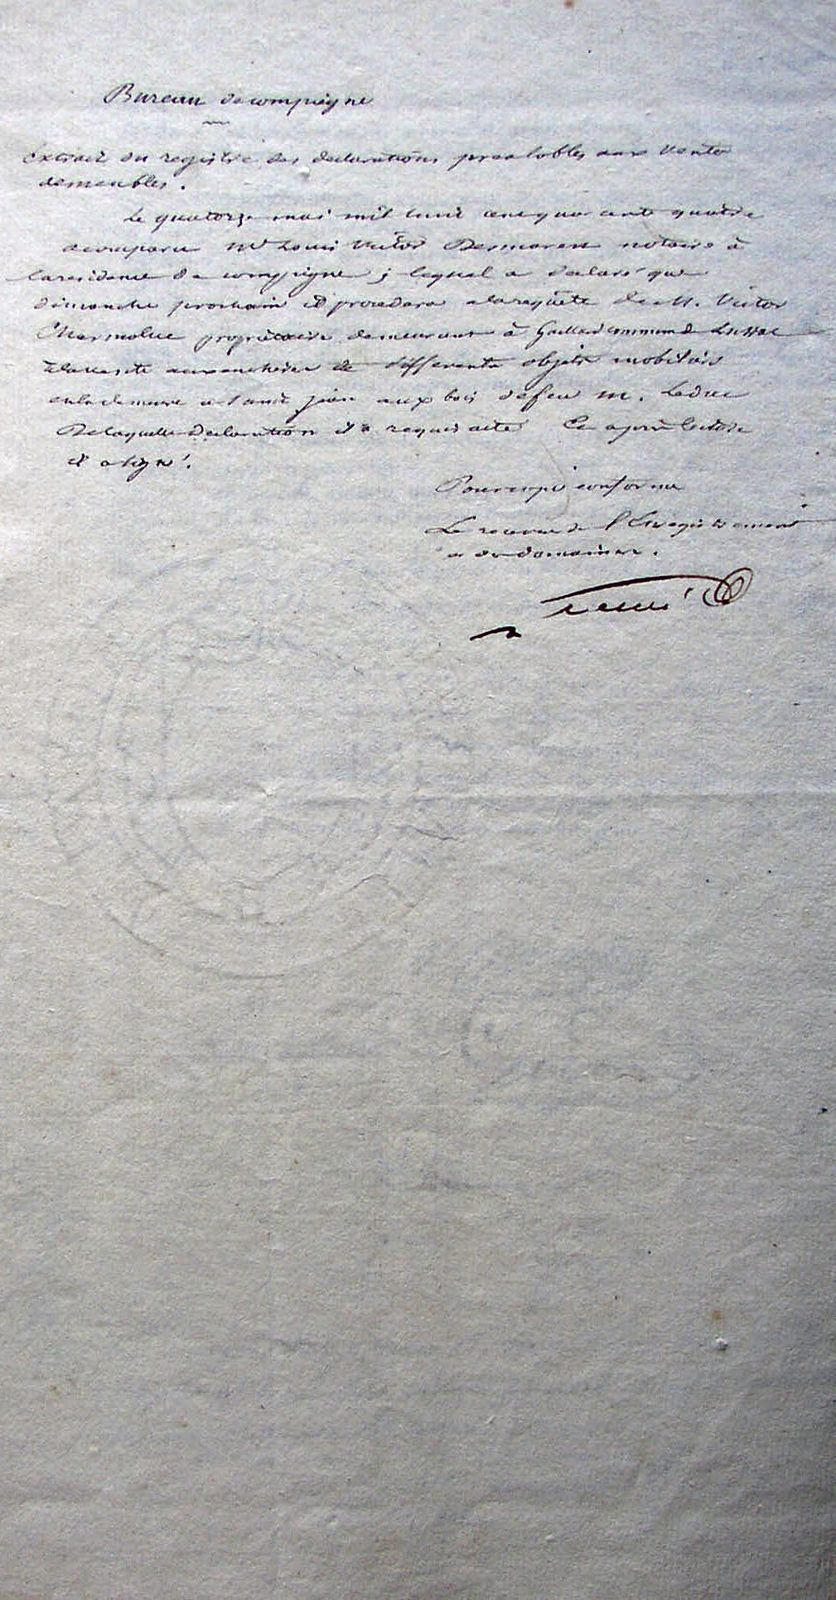 Bureau de compiegne
Extrait du registre des declarations prealables aux ventes
de meubles.
Le quatorze mai mil huit cent quarante quatre
a comparu Me Louis Victor Desmarest notaire à
la residence de compiegne ; lequel a declaré que
dimanche prochain il procedera a la requête de M. Victor
Charmolue propriétaire demeurant à commune de
à la vente aux encheres de differents objets mobiliers
en la demeure a Saint jean aux bois de feu M. Leduc
De laquelle declaration il a requis acte Et après lecture
il a signé.
Pour copie conforme
Le receveur de l'Enregistrement
et des domaines.